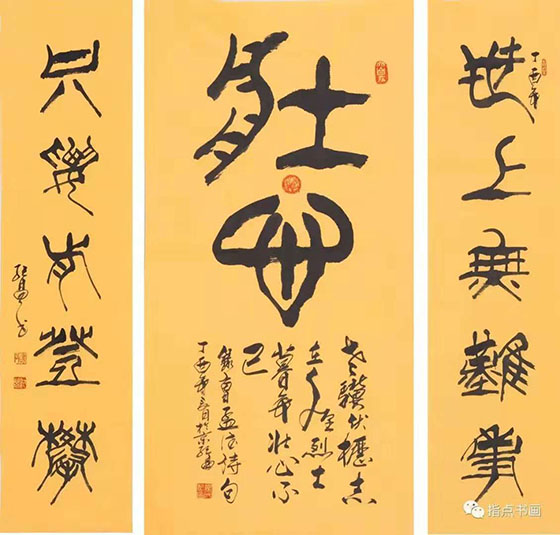 丁酉年
世上無難事
壯心
老驥伏櫪志
在千里烈士
暮年壯心不
已
錄曹孟德詩句
丁酉年月於京
只要肯登攀
指点书画